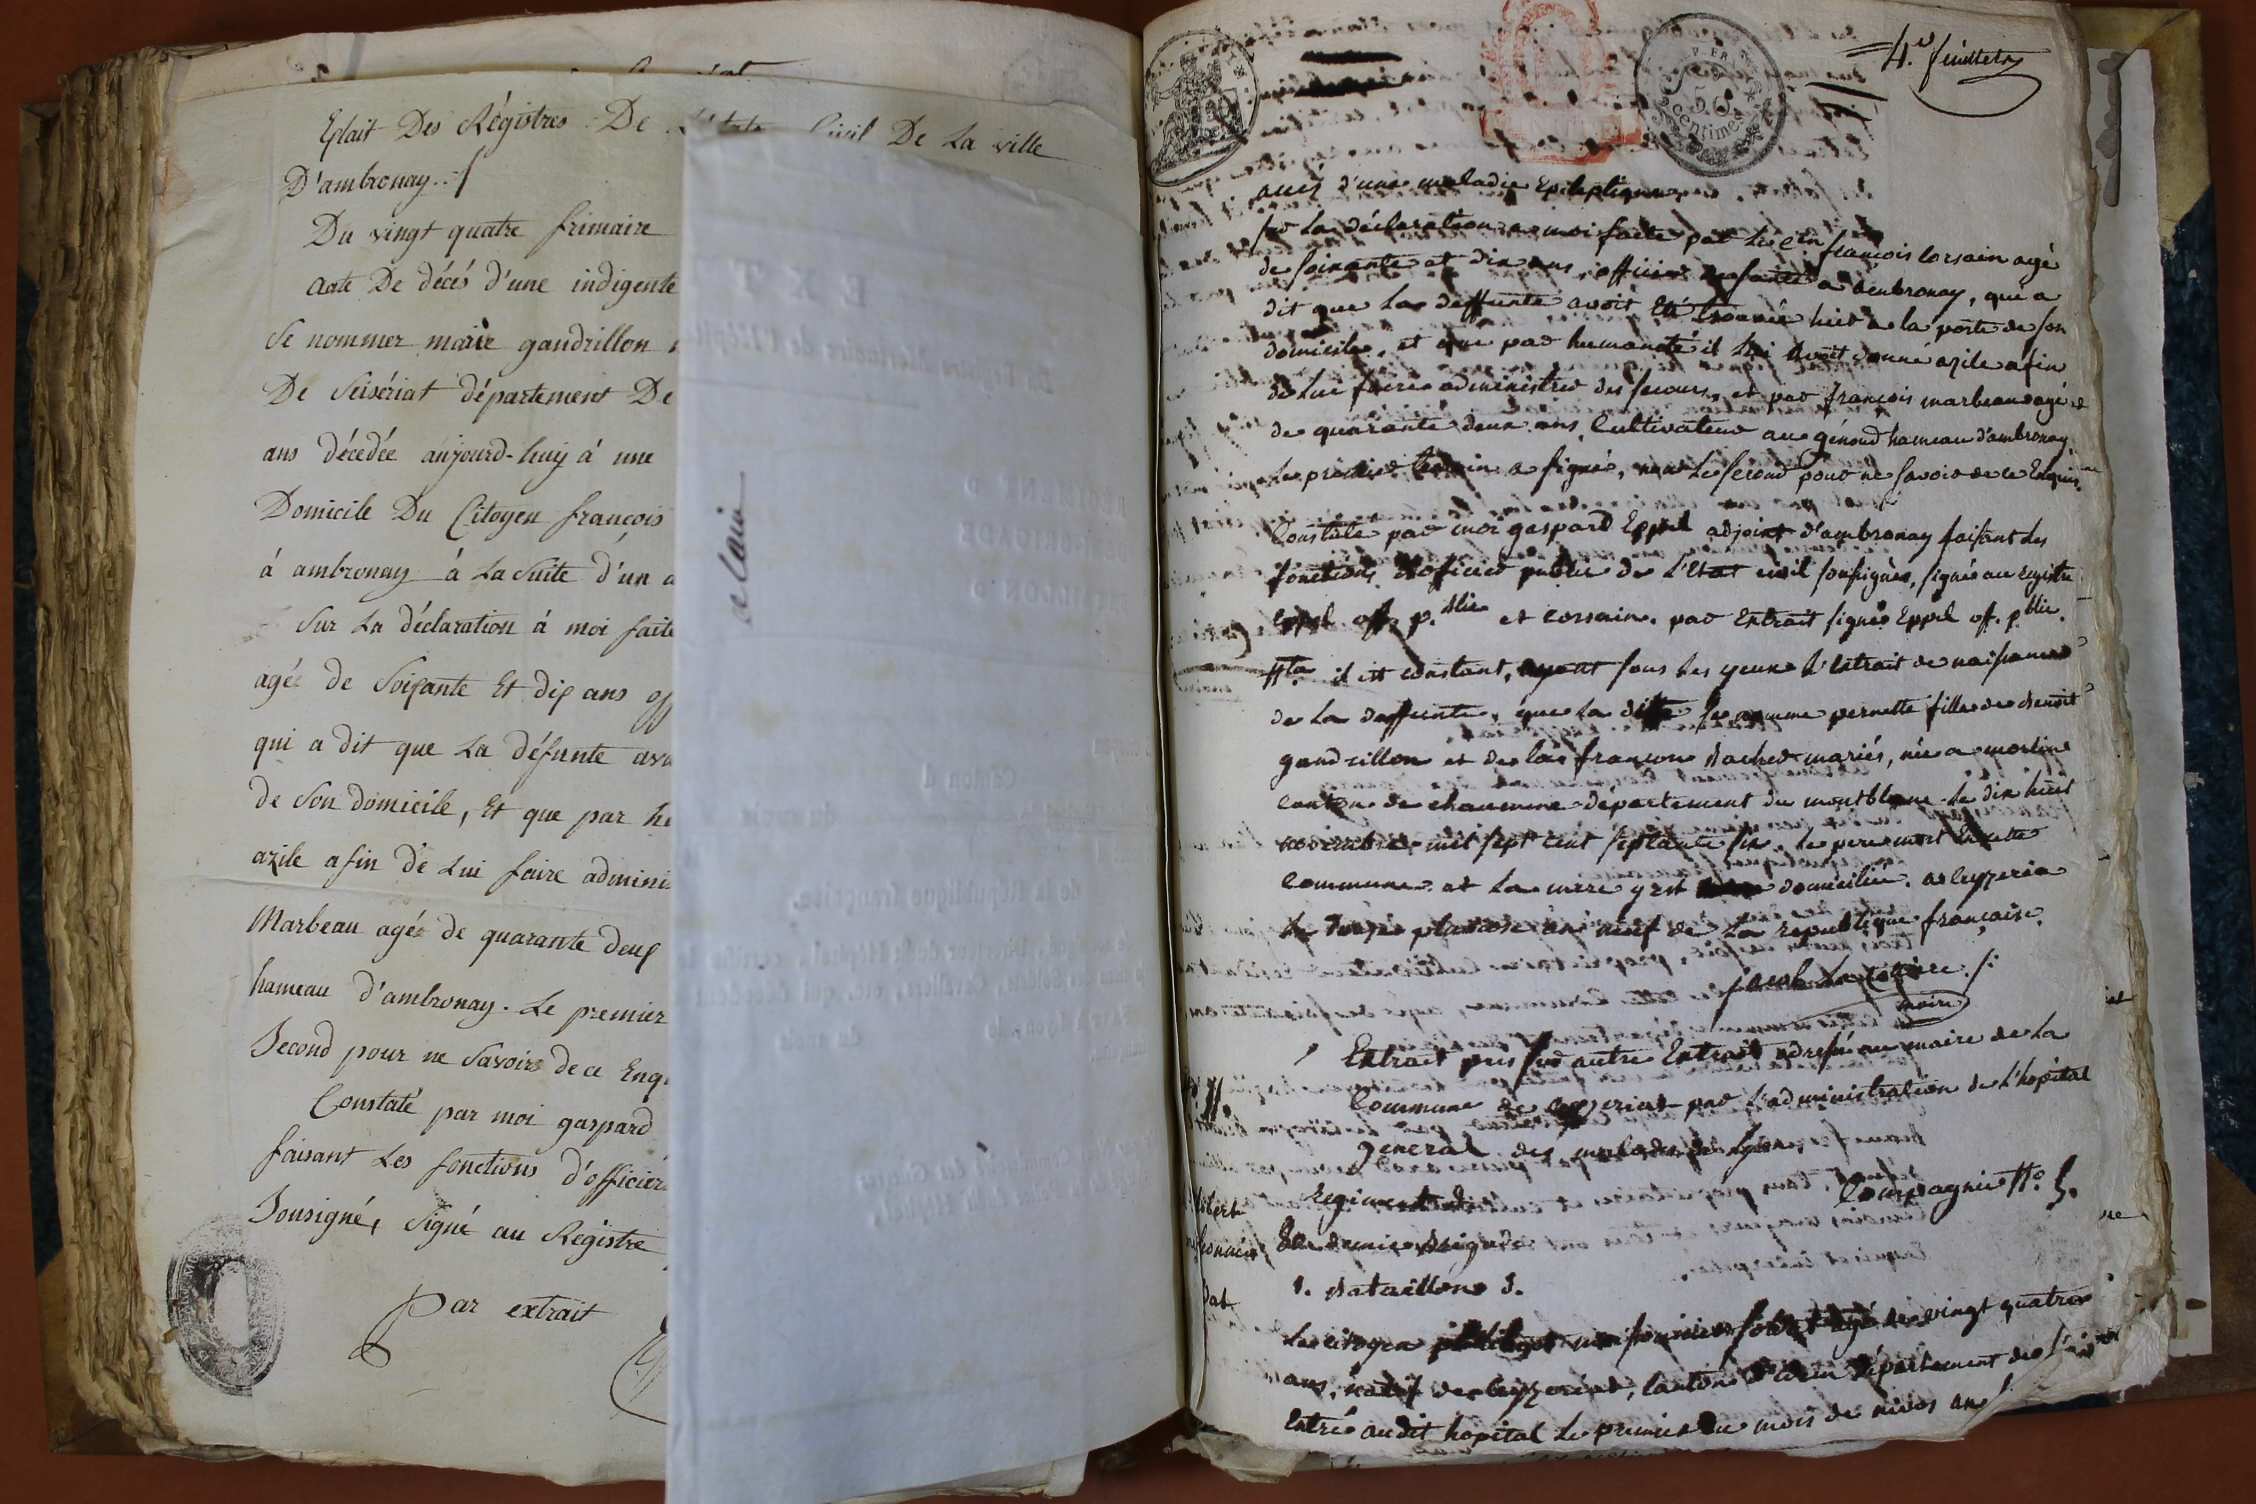 Extait Des Régistres De L'état Civil De La ville
D'ambronay
Du vingt quatre frimaire
acte De décés d'une indigente
Se nommer marie gaudrillon
De Seisériat département De
ans décedée aujourd-huy á une
Domicile Du Citoyen françois
á ambronay á La Suite d'un a
Sur La déclaration á moi faite
agée de Soixante Et dix ans off
qui a dit que La défunte ava
de Son domicile, Et que par hu
azile afin de Lui faire adminis
Marbeau agée de quarante deux
hameau d'ambronay. Le premier
Second pour ne Savoir de ce Enq
Constaté par moi gaspard
faisant Les fonctions d'officier
Sousigné, Signé au Régistre
Par extrait
a Lain
4.e feuillet
50
Centimes
d'une maladie Epileptique
sur La déclaration a moi faite par Le c.en françois corsain agé
de soixante et dix ans, officier de santé a ambronay, qui a
dit que La deffunte avoit Eté trouvée hier a la porte de son
domicile, et que par humanité il Lui avoit donné azile afin
de Lui faire administrer des secours, et par françois marbeau agé
de quarante deux ans, Cultivateur au génoud hameau d'ambronay,
Le premier temoin a signé, non Le second pour ne savoir de ce Enquis
Constaté par moi gaspard Eppel adjoint d'ambronay faisant Les
fonctions d'officier public de L'Etat civil soussigné, signé au registre
Eppel off. p.blic et corsain. par Extrait signé Eppel off. p.blic.
N.ta il est constant, ayant sous Les yeux L'Extrait de naissance
de La deffunte, que La ditte se nomme pernette fille de Benoit
gaudrillon et de françoise mariés, née a
canton de chaumine département du montblanc Le dix huit
novembre mil sept cent septante six, Le pere mort En cette
Commune et La mere y est domiciliée. a Leyzeria
Le pluviose an neuf de La république française.
maire
Extrait pris sur autre Extrait adressé au maire de La
Commune de Leyzeriat par L'administration de L'hopital
général des malades de Lyon.
Regiment d Compagnie N.o 5.
demie Brigade
Bataillon 3.
Le citoyen soldat agé de vingt quatre
ans, natif de Leyzeriat, Canton département de L'ain
Entré audit hopital Le premier du mois de nivos an